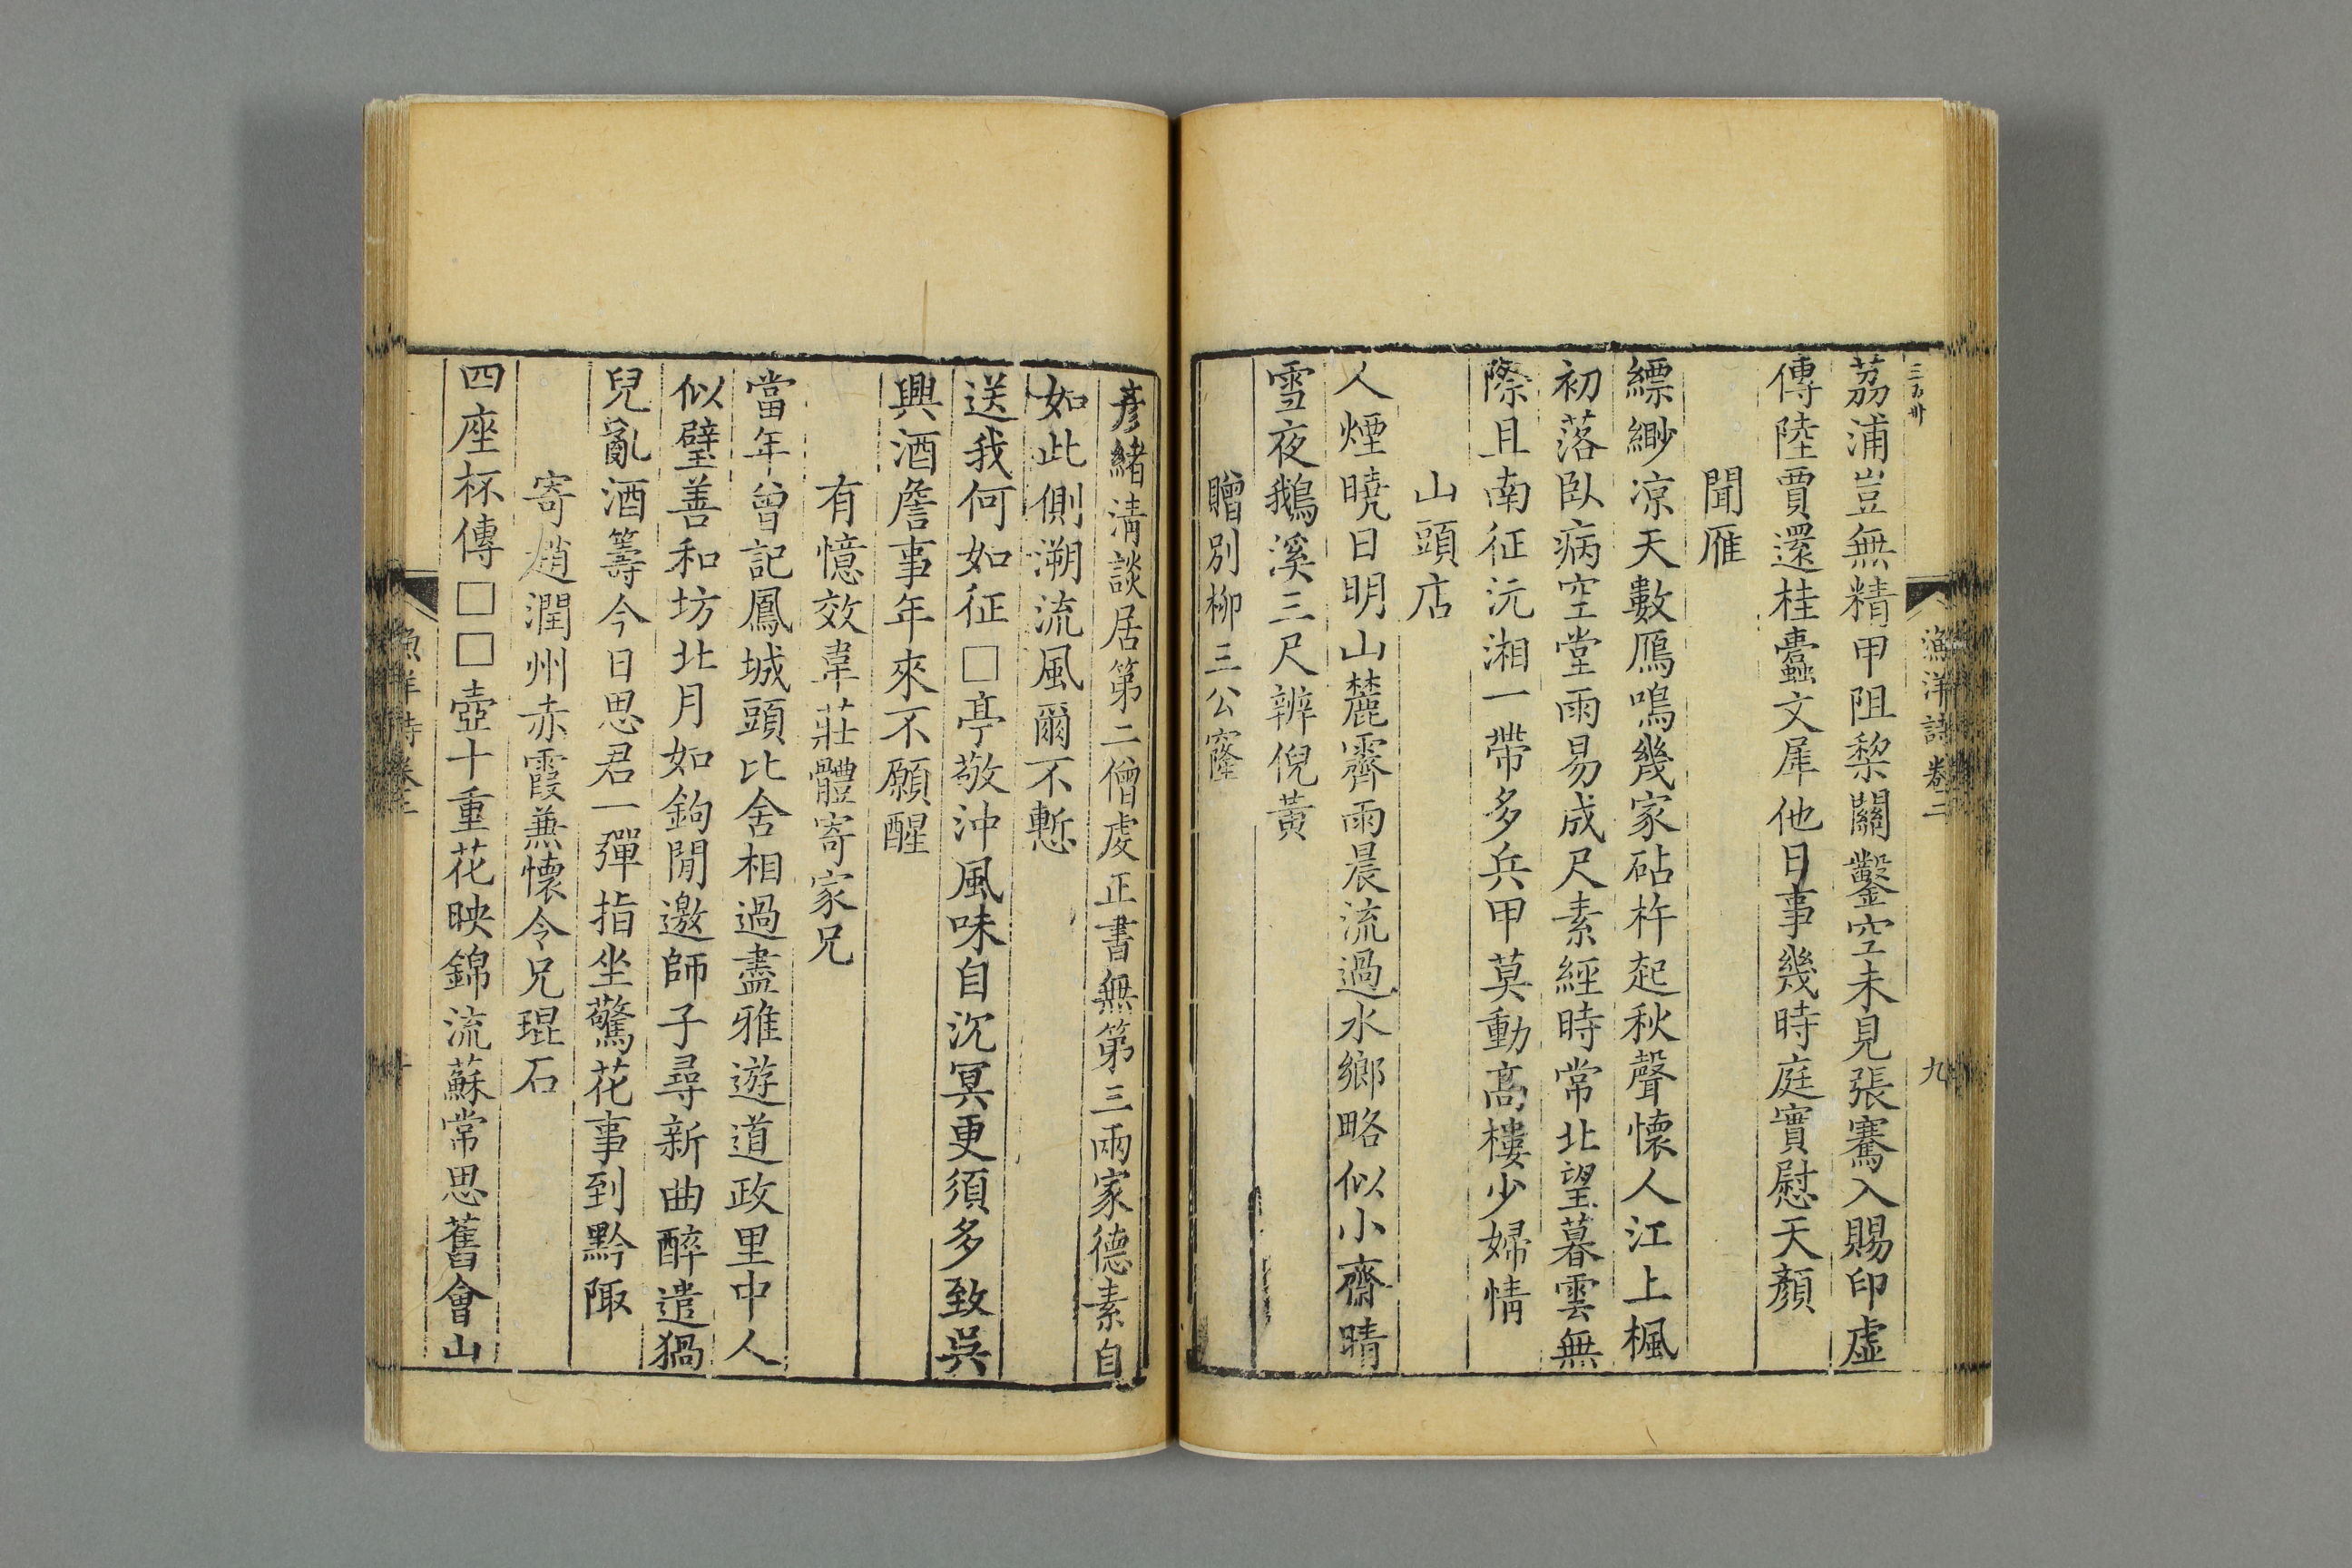 漁洋詩卷二
九
荔浦豈無精甲阻犂關鑿空未見張騫入賜印虛
傳陸賈還桂蠹文犀他日事幾時庭實慰天顏
聞雁
縹緲凉天數鴈鳴幾家砧杵起秋聲懷人江上楓
初落臥病空堂雨易成尺素經時常北望暮雲無
際且南征沅湘一帶多兵甲莫動高樓少婦情
山頭店
人煙曉日明山麓霽雨晨流過水鄉略似小齋晴
雪夜鵝溪三尺辨倪黃
贈別柳三公窿
彥緒淸談居第二僧虔正書無第三兩家德素自
如此側溯流風爾不慙
送我何如征□亭敬沖風味自沉冥更須多致吳
興酒詹事年來不願醒
有憶效韋莊體寄家兄
當年曾記鳳城頭比舍相過盡雅遊道政里中人
似璧善和坊北月如鉤閒邀師子尋新曲醉遣猧
兒亂酒籌今日思君一彈指坐驚花事到黔陬
寄趙潤州赤霞兼懷令兄琨石
四座杯傳□□壺十重花映錦流蘇常思舊會山